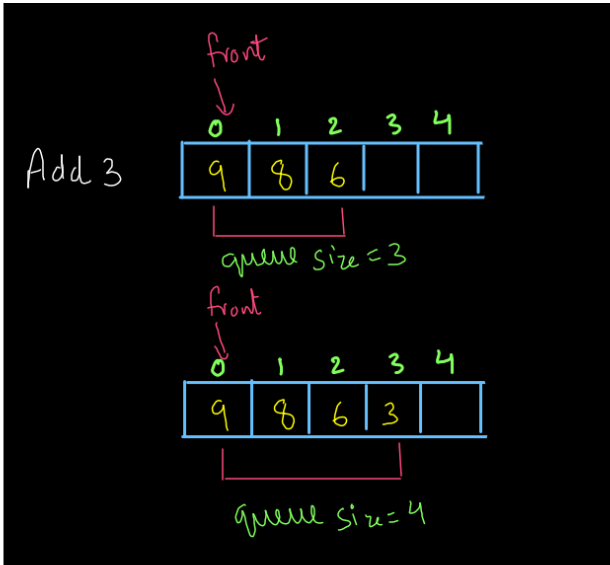 front
0 1 2 3 4
Add 3
9 8 6
queue size = 3
front
0 1 2 3 4
9 8 6 3
queue size = 4